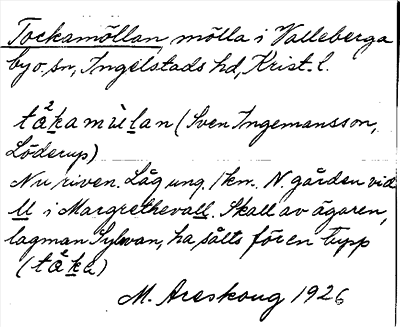 Tockamöllan mölla i Valleberga
by o. sn, Ingelstads hd, Krist. l.
tåkamùlan (Sven Ingemansson,
Löderup)
Nu riven. Låg ung. 1 km. N. gården vid
ll i Margrethevall. Skall av ägaren,
lagman Sylwan, ha sålts för en tupp
(tåka)
M. Areskoug 1926